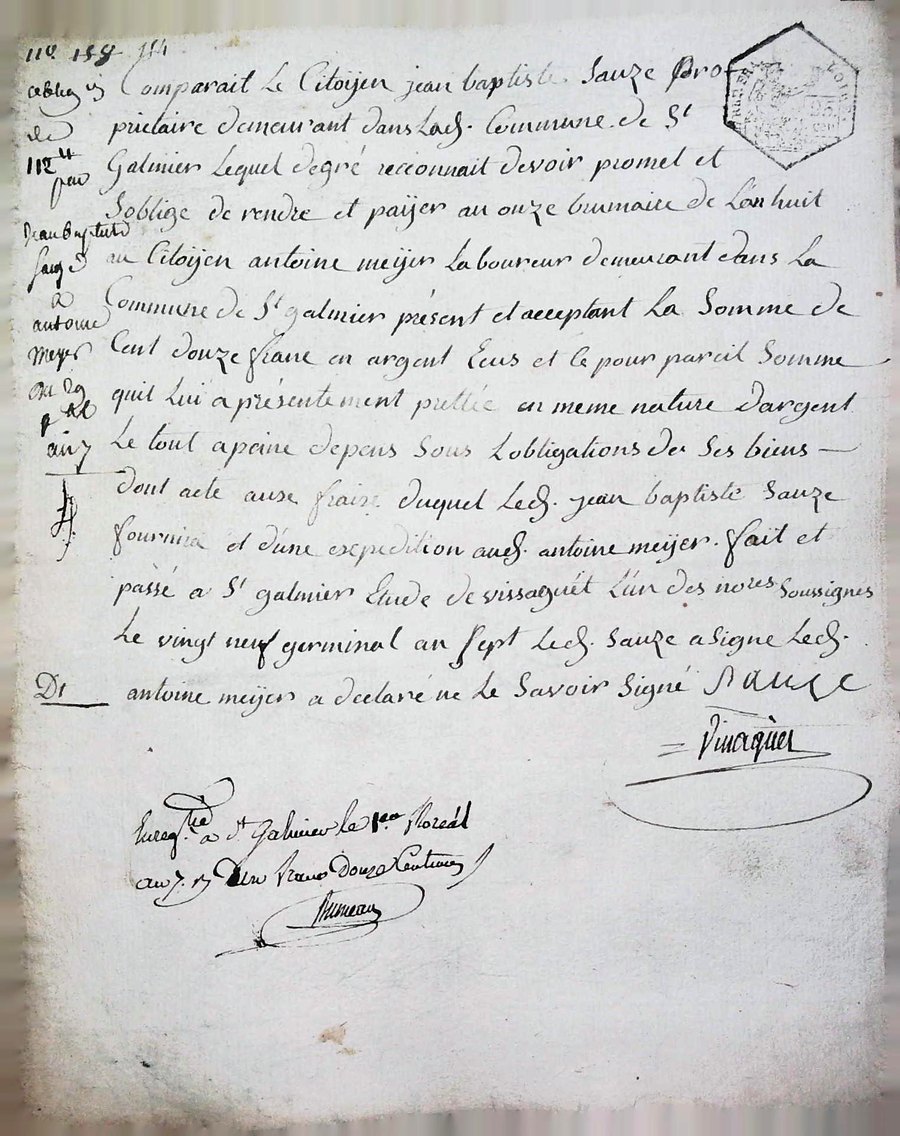 nº 158
obligaon
de
112tt
par
Jean Baptiste
Sauze
a
antoine
Meyer
Du 29
gal
an 7
Comparait Le Citoÿen jean baptiste Sauze Pro-
prietaire demeurant dans Lad. Commune de St
Galmier Lequel degré reconnait devoir promet et
Soblige de rendre et païjer au onze brumaire de Lan huit
au Citoÿen antoine meijer Laboureur demeurant dans La
Commune de St galmier présent et acceptant La Somme de
Cent douze franc en argent Ecus et ce pour pareil Somme
quil Lui a présentement prettée en meme nature D'argent
Le tout a peine depens Sous Lobligations de Ses biens —
dont acte aux fraix duquel Led. jean baptiste Sauze
fournira et d'une expedition aud. antoine meijer. fait et
passé a St galmier Etude de vissaguét L'un des nores Soussignés
Le vingt neuf germinal an Sept Led. Sauze a Signe Led.
Dt antoine meijer a declaré ne Le Savoir Signé Sauze
Vissaguet
Enregtré a St Galmier le 1er floréal
an 7. Un franc Douze Centimes